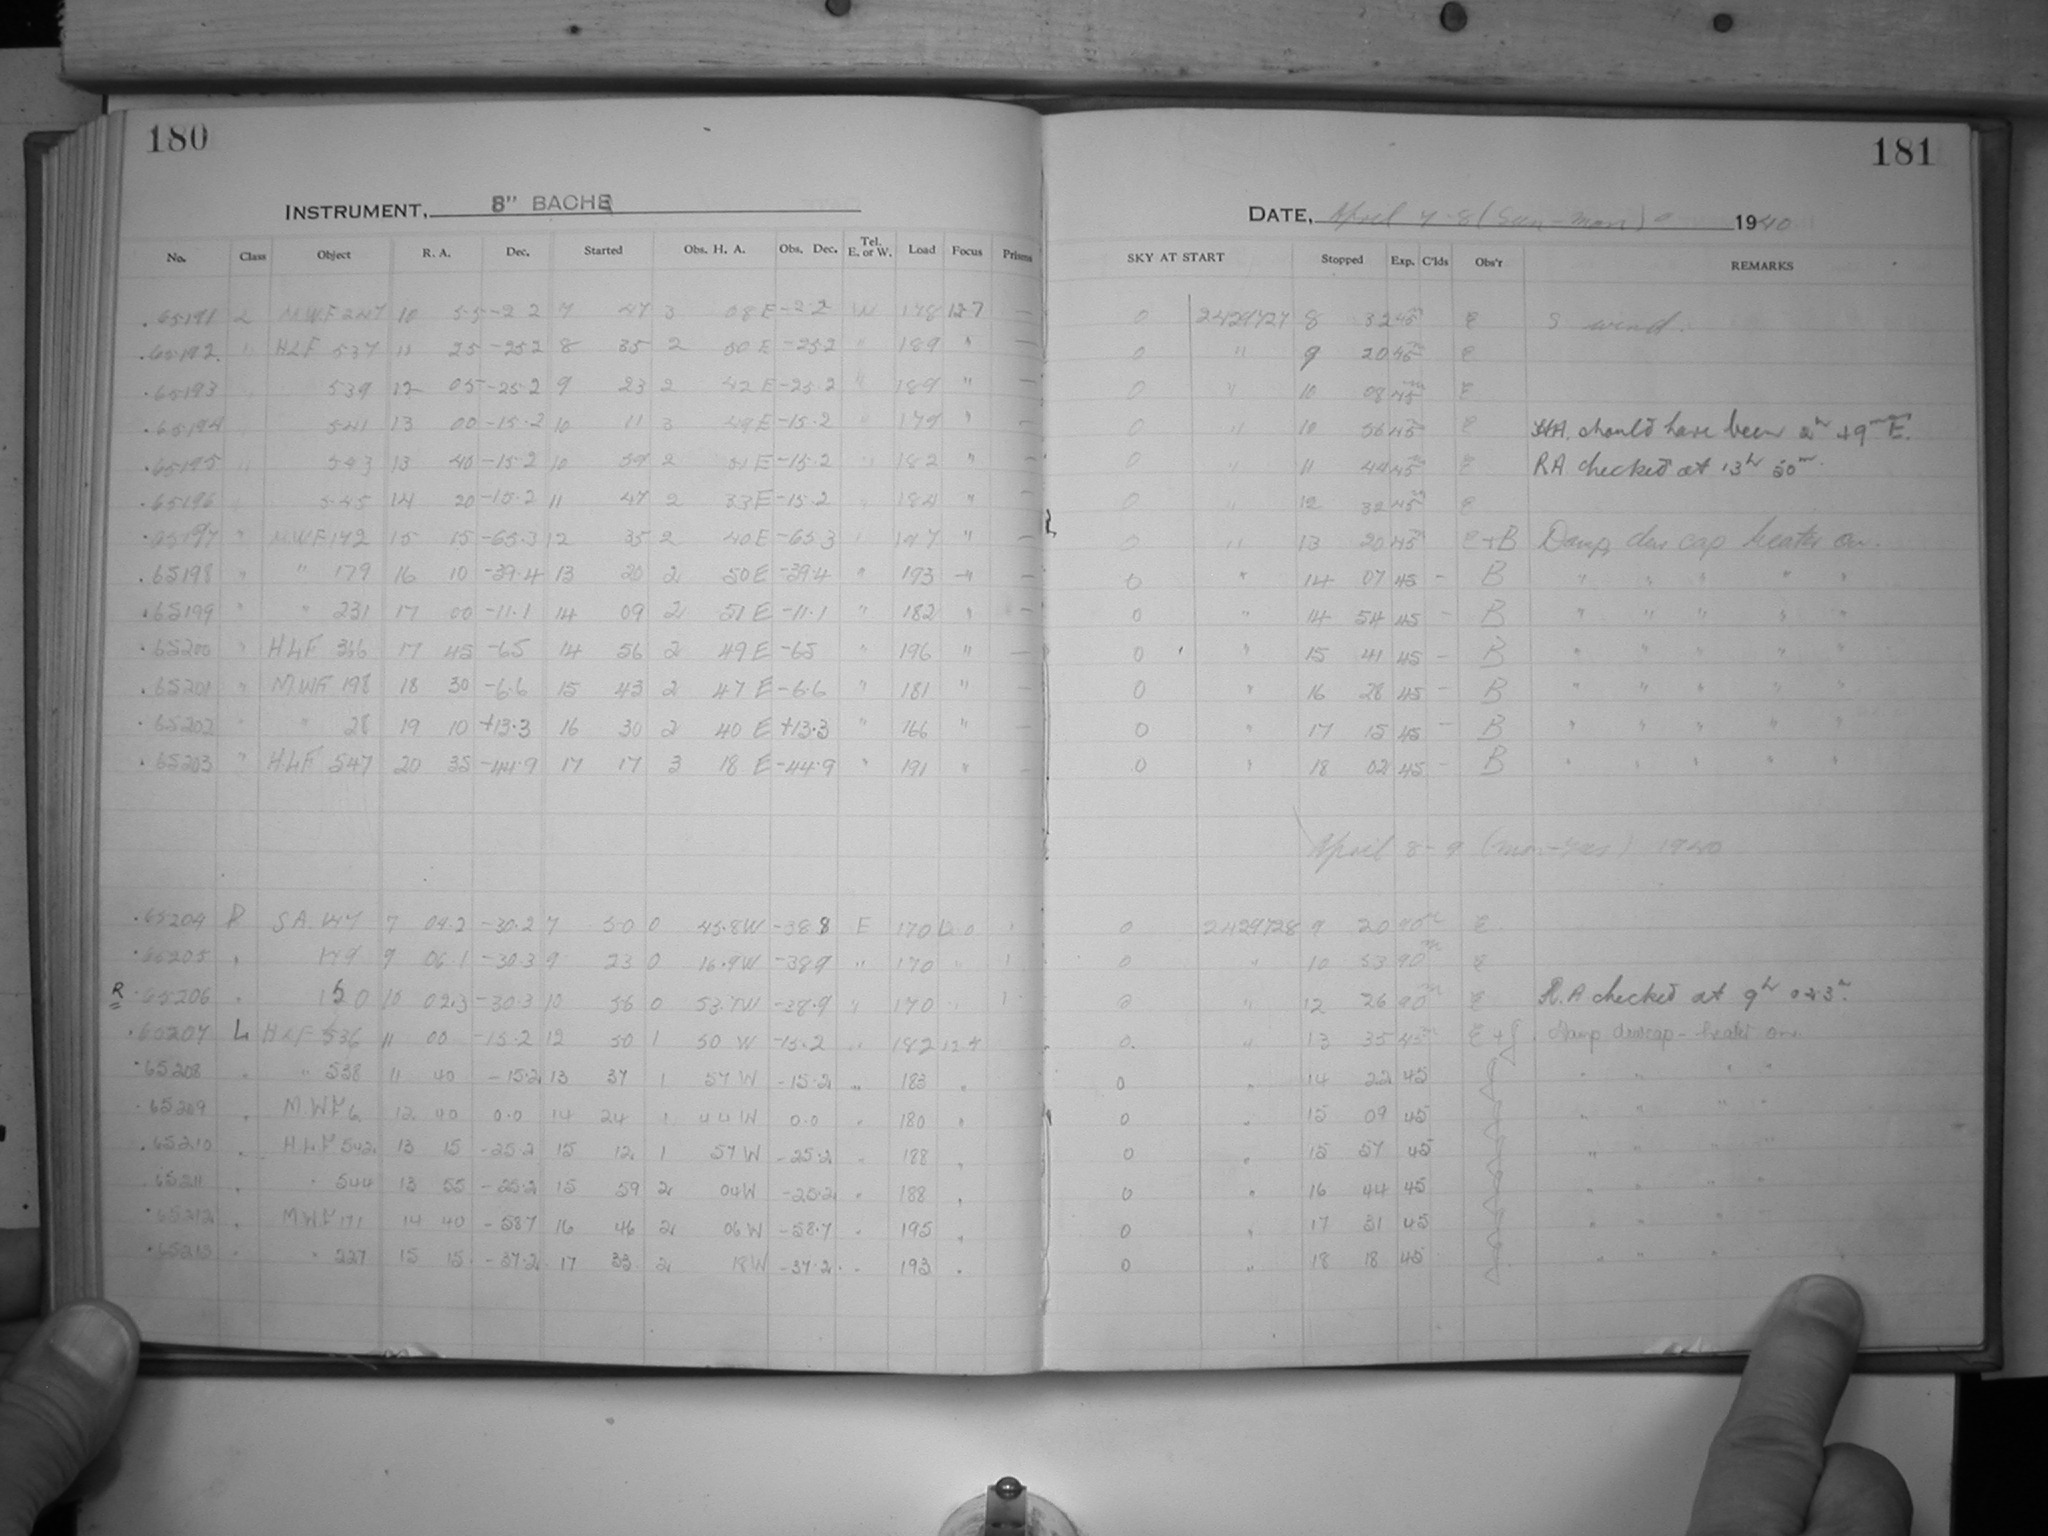 180
181
INSTRUMENT, 8" BACHE
DATE, April 7-8 (Sun-Mon) 1940
No. Class Object R. A. Dec. Started Obs. H. A. Obs. Dec. Tel. E. or W. Load Focus Prisms SKY AT START Stopped Exp. C'lds Obs'r REMARKS
65191 L MWF 247 10 55 -2.2 7 47 3 08 E -2.2 W 178 12.7 — 0 2429727 8 32 45m E S wind.
65192 " HLF 537 11 25 -25.2 8 35 2 50 E -25.2 " 189 " — 0 " 9 20 45m E
65193 " 539 12 05 -25.2 9 23 2 42 E -25.2 " 189 " — 0 " 10 08 45m E
65194 " 541 13 00 -15.2 10 11 3 49 E -15.2 " 179 " — 0 " 10 56 45m E HA. should have been 2h 49m E.
65195 " 543 13 40 -15.2 10 59 2 51 E -15.2 " 182 " — 0 " 11 44 45m E RA checked at 13h 50m.
65196 " 545 14 20 -15.2 11 47 2 33 E -15.2 " 184 " — 0 " 12 32 45m E
65197 " MWF 172 15 15 -65.3 12 35 2 40 E -65.3 " 197 " — 0 " 13 20 45m E+B Damp, dew cap heater on.
65198 " " 179 16 10 -39.4 13 20 2 50 E -39.4 " 193 " — 0 " 14 07 45 - B " " " " "
65199 " " 231 17 00 -11.1 14 09 2 51 E -11.1 " 182 " — 0 " 14 54 45 - B " " " " "
65200 " HLF 366 17 45 -65 14 56 2 49 E -65 " 196 " — 0 " 15 41 45 - B " " " " "
65201 " MWF 198 18 30 -6.6 15 43 2 47 E -6.6 " 181 " — 0 " 16 28 45 - B " " " " "
65202 " " 28 19 10 +13.3 16 30 2 40 E +13.3 " 166 " — 0 " 17 15 45 - B " " " " "
65203 " HLF 547 20 35 -44.9 17 17 3 18 E -44.9 " 191 " — 0 " 18 02 45 - B " " " " "
April 8-9 (Mon-Tues) 1940
65204 SA 147 7 04.2 -30.2 7 50 0 45.8 W -38.8 E 170 12.0 1 0 2429728 9 20 90m E
65205 " 149 9 06.1 -30.3 9 23 0 16.9 W -38.9 " 170 " 1 0 " 10 53 90m E
R 65206 " 150 10 02.3 -30.3 10 56 0 53.7 W -38.9 " 170 " 1 0 " 12 26 90m E R.A checked at 9h 03m.
65207 L HLF 536 11 00 -15.2 12 50 1 50 W -15.2 " 182 12.7 0 " 13 35 45m E + Damp dewcap - heater on.
65208 " " 538 11 40 -15.2 13 37 1 57 W -15.2 " 183 " 0 " 14 22 45 " " " "
65209 " MWF 6 12 40 0.0 14 24 1 44 W 0.0 " 180 " 0 " 15 09 45 " " " "
65210 " HLF 542 13 15 -25.2 15 12 1 57 W -25.2 " 188 " 0 " 15 57 45 " " " "
65211 " " 544 13 55 -25.2 15 59 2 04 W -25.2 " 188 " 0 " 16 44 45 " " " "
65212 " MWF 171 14 40 -58.7 16 46 2 06 W -58.7 " 195 " 0 " 17 31 45 " " " "
65213 " " 227 15 15 -37.2 17 33 2 18 W -37.2 " 193 " 0 " 18 18 45 " " " "